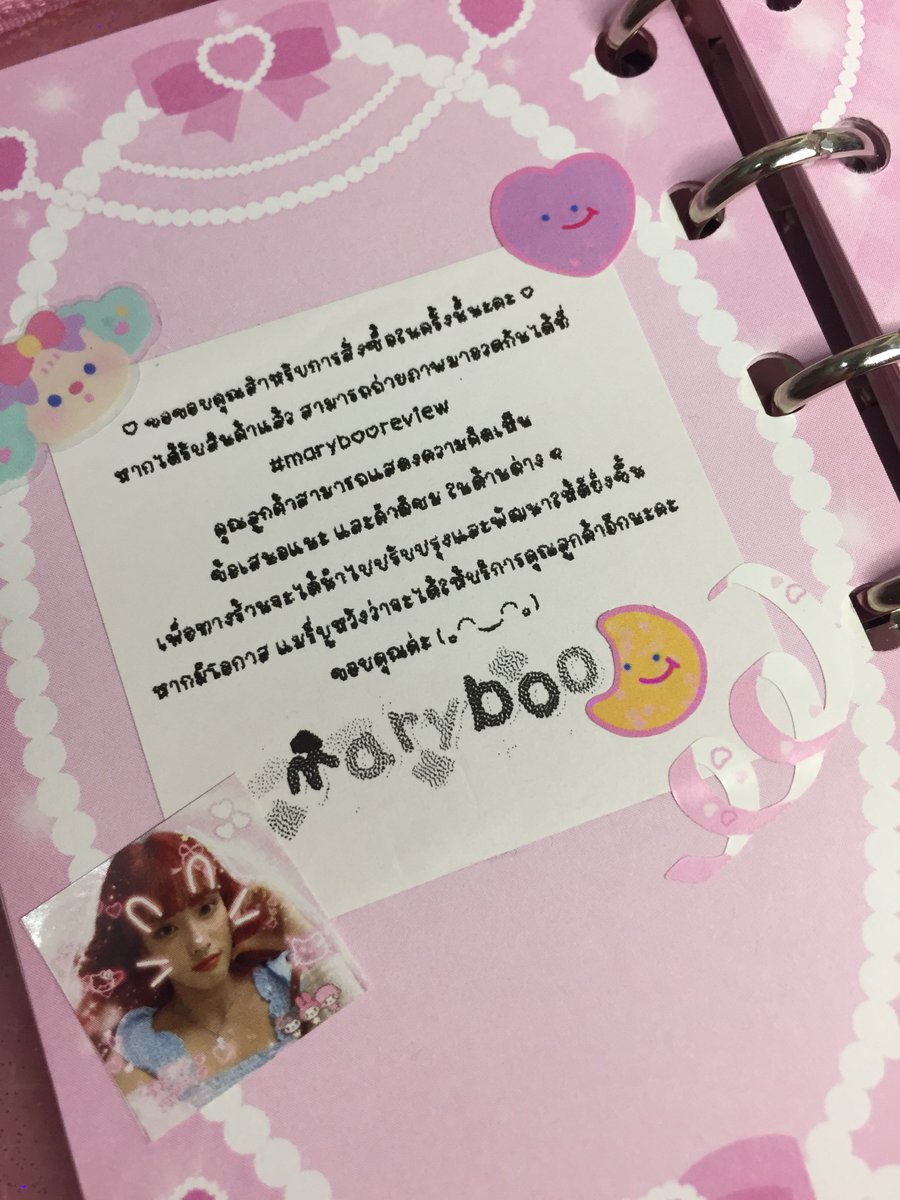 ♡ ขอขอบคุณสำหรับการสั่งซื้อในครั้งนี้นะคะ ♡
หากได้รับสินค้าแล้ว สามารถถ่ายภาพมาอวดกันได้ที่
#marybooreview
คุณลูกค้าสามารถแสดงความคิดเห็น
ข้อเสนอแนะ และคำติชม ในด้านต่าง ๆ
เพื่อทางร้านจะได้นำไปปรับปรุงและพัฒนาให้ดียิ่งขึ้น
หากมีโอกาส แมรี่บูหวังว่าจะได้ให้บริการคุณลูกค้าอีกนะคะ
ขอบคุณค่ะ (｡◠‿◠｡)
maryboo